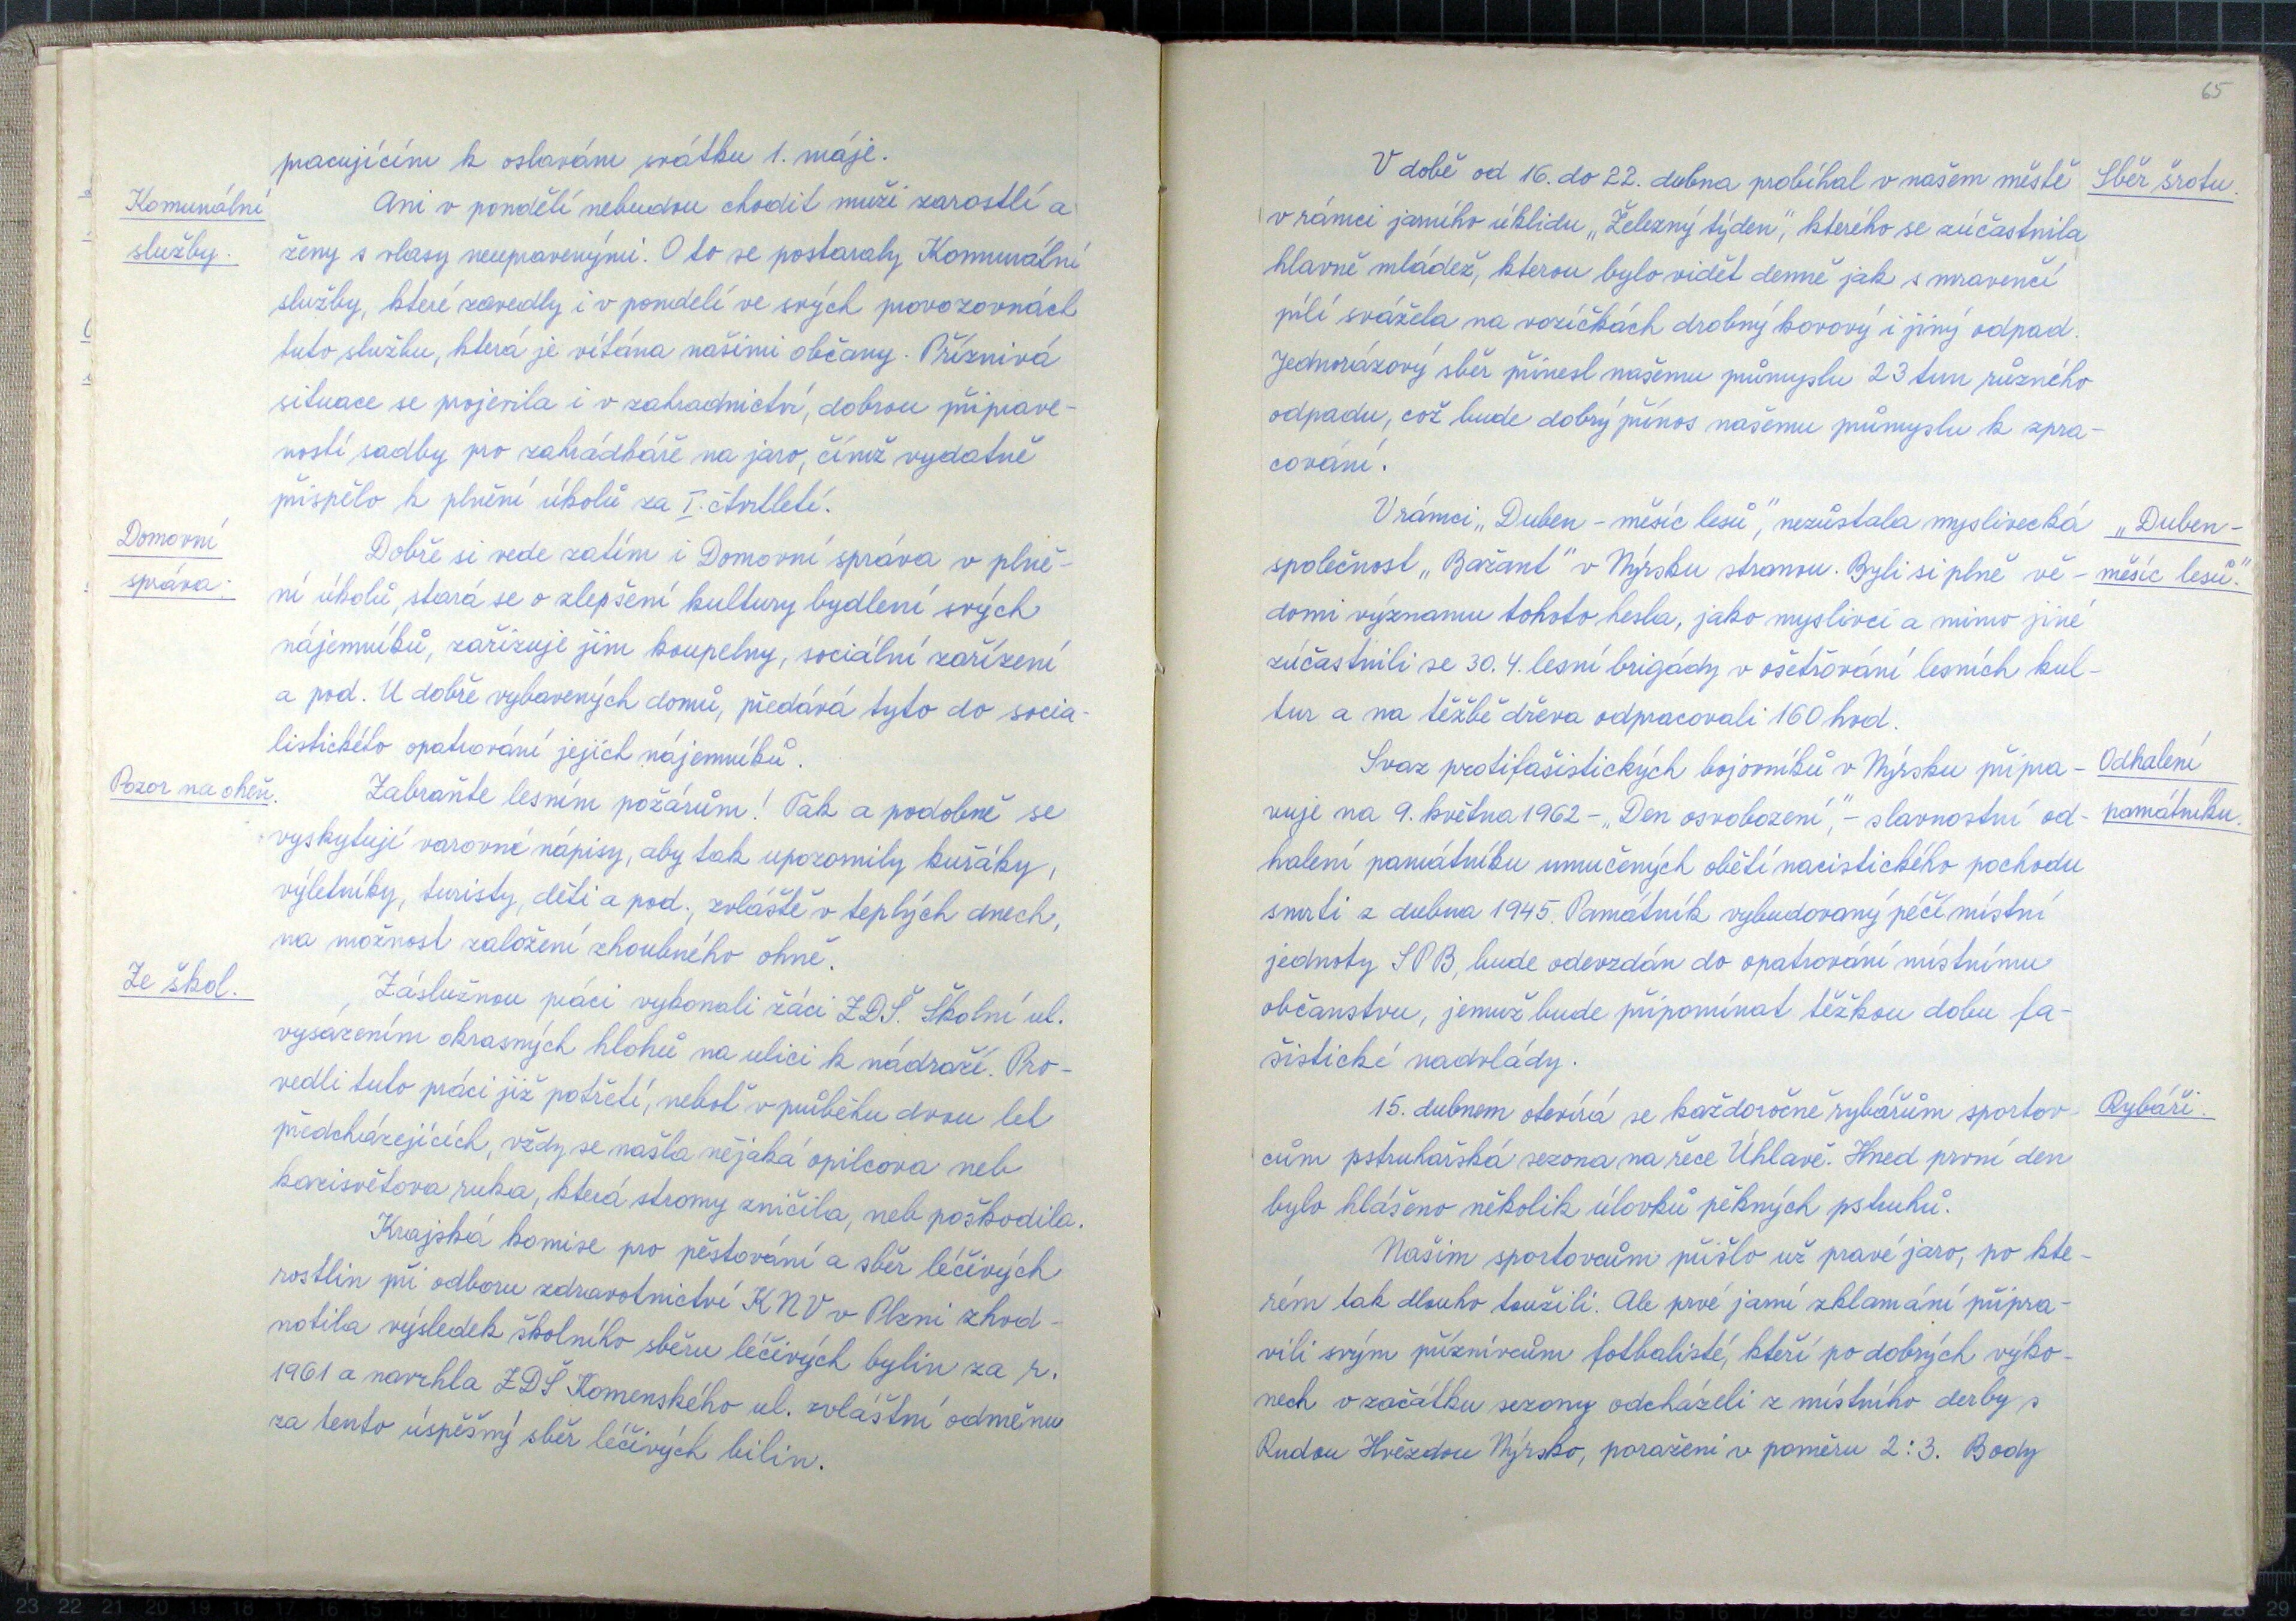 pracujícím k oslavám svátku 1. máje.
Komunální
služby.
Ani v pondělí nebudou chodit muži zarostlí a
ženy s vlasy neupravenými. O to se postaraly Komunální
služby, které zavedly i v pondelí ve svých provozovnách
tuto službu, která je vítána našimi občany. Příznivá
situace se projevila i v zahradnictví, dobrou připrave-
ností sadby pro zahrádkáře na jaro, čímž vydatně
přispělo k plnění úkolů za I. čtvrtletí.
Domovní
správa.
Dobře si vede zatím i Domovní správa v plně-
ní úkolů, stará se o zlepšení kultury bydlení svých
nájemníků, zařizuje jim koupelny, sociální zařízení
a pod. U dobře vybavených domů, předává tyto do socia-
listického opatrování jejich nájemníků.
Pozor na oheň.
Zabraňte lesním požárům! Tak a podobně se
vyskytují varovné nápisy, aby tak upozornily kuřáky,
výletníky, turisty, děti a pod., zvláště v teplých dnech,
na možnost založení zhoubného ohně.
Ze škol.
Záslužnou práci vykonali žáci ZDŠ. Školní ul.
vysázením okrasných hlohů na ulici k nádraží. Pro-
vedli tuto práci již potřetí, neboť v průběhu dvou let
předcházejících, vždy se našla nějaká opilcova neb
kazisvětova ruka, která stromy zničila, neb poškodila.
Krajská komise pro pěstování a sběr léčivých
rostlin při odboru zdravotnictví KNV v Plzni zhod-
notila výsledek školního sběru léčivých bylin za r.
1961 a navrhla ZDŠ Komenského ul. zvláštní odměnu
za tento úspěšný sběr léčivých bilin.
65
V době od 16. do 22. dubna probíhal v našem městě
Sběr šrotu.
v rámci jarního úklidu „Železný týden", kterého se zúčastnila
hlavně mládež, kterou bylo vidět denně jak s mravenčí
pílí svážela na vozíčkách drobný kovový i jiný odpad.
Jednorázový sběr přinesl našemu průmyslu 23 tun různého
odpadu, což bude dobrý přínos našemu průmyslu k zpra-
cování.
V rámci „Duben - měsíc lesů", nezůstala myslivecká
„Duben-
měsíc lesů."
společnost „Bažant" v Nýrsku stranou. Byli si plně vě-
domi významu tohoto hesla, jako myslivci a mimo jiné
zúčastnili se 30. 4. lesní brigády v ošetřování lesních kul-
tur a na těžbě dřeva odpracovali 160 hod.
Svaz protifašistických bojovníků v Nýrsku připra-
Odhalení
památníku.
vuje na 9. května 1962 - „Den osvobození," - slavnostní od-
halení památníku umučených obětí nacistického pochodu
smrti z dubna 1945. Památník vybudovaný péčí místní
jednoty SPB, bude odevzdán do opatrování místnímu
občanstvu, jemuž bude připomínat těžkou dobu fa-
šistické nadvlády.
15. dubnem otevírá se každoročně rybářům sportov-
Rybáři.
cům pstruhařská sezona na řece Úhlavě. Hned první den
bylo hlášeno několik úlovků pěkných pstruhů.
Našim sportovcům přišlo už pravé jaro, po kte-
rém tak dlouho toužili. Ale prvé jarní zklamání připra-
vili svým příznivcům fotbalisté, kteří po dobrých výko-
nech v začátku sezony odcházeli z místního derby s
Rudou Hvězdou Nýrsko, poraženi v poměru 2:3. Body